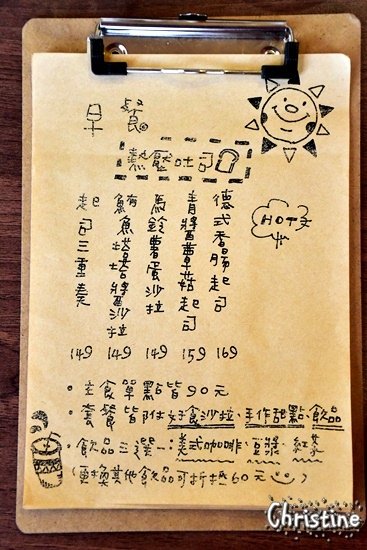 早餐
熱壓吐司
HOT
德式香腸起司 169
青醬蘑菇起司 159
馬鈴薯蛋沙拉 149
鮪魚塔塔醬沙拉 149
起司三重奏 149
。主食單點皆90元
。套餐皆附好食沙拉、手作甜點、飲品
。飲品三選一:美式咖啡、豆漿、紅茶
(更換其他飲品可折抵60元)
Christine